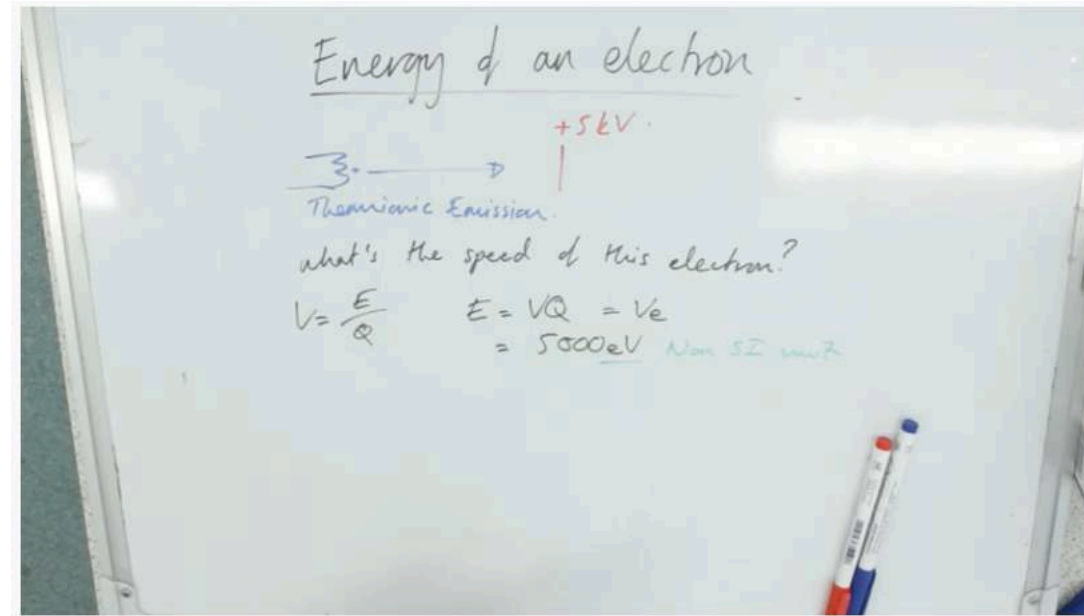 Energy of an electron
+5kV.
Thermionic Emission.
what's the speed of this electron?
V = E/Q E = VQ = Ve
= 5000eV Non SI unit